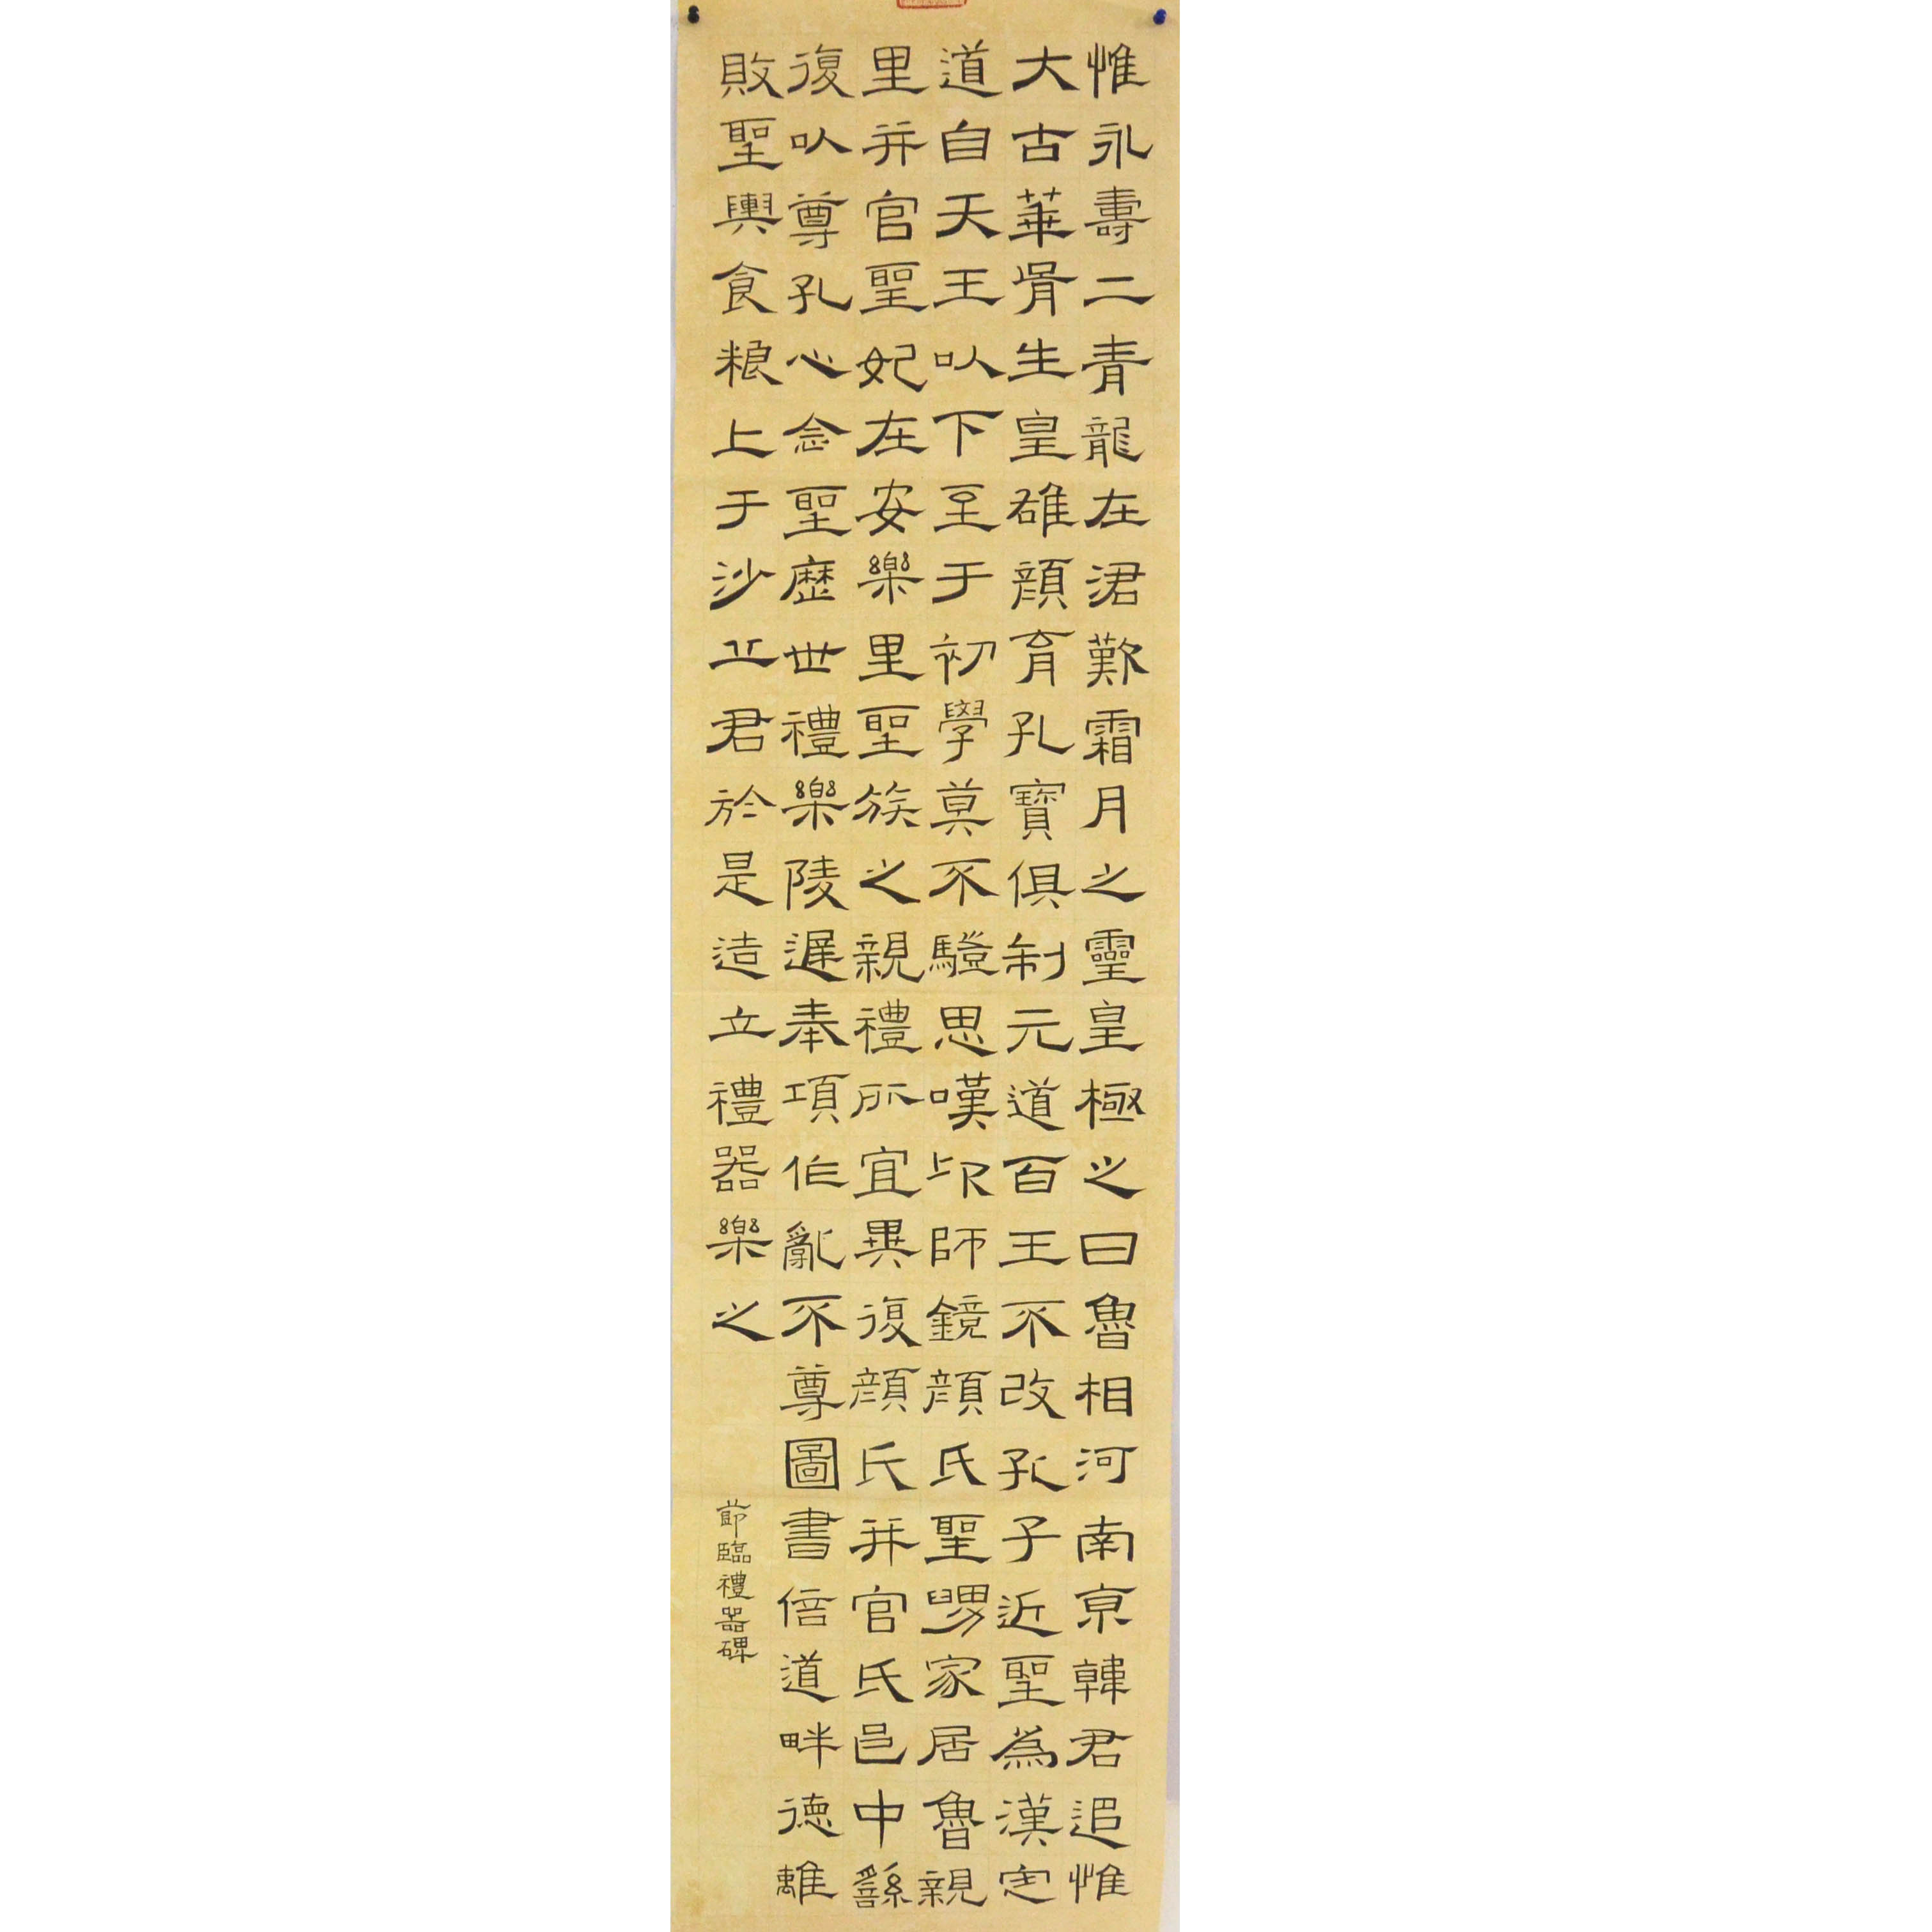 惟永壽二青龍在涒歎霜月之靈皇極之日魯相河南京韓君追惟
大古華胥生皇雄顏育孔寶俱制元道百王不改孔子近聖為漢定
道自天王以下至于初學莫不驥思嘆卬師鏡顏氏聖舅家居魯親
里并官聖妃在安樂里聖族之親禮所宜異復顏氏并官氏邑中繇
復以尊孔心念聖歷世禮樂陵遲秦項作亂不尊圖書倍道畔德離
敗聖輿食粮上于沙丘君於是造立禮器樂之
節臨禮器碑